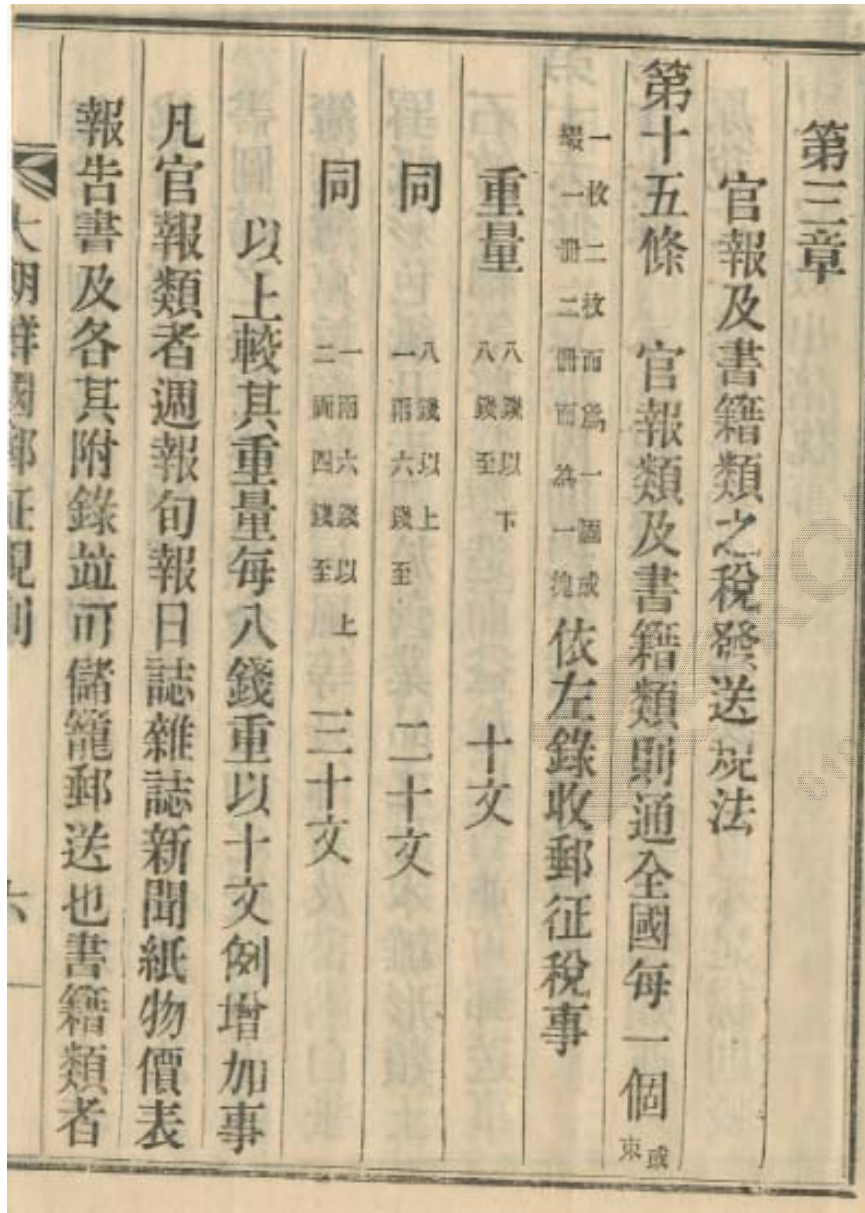 第三章
官報及書籍類之稅發送規法
第十五條　官報類及書籍類則通全國每一個或束
一枚二枚而爲一個或綴一冊二冊而爲一塊依左錄收郵征稅事
重量　八錢以下八錢至　十文
同　八錢以上一兩六錢至　二十文
同　一兩六錢以上二兩四錢至　三十文
以上較其重量每八錢重以十文例增加事
凡官報類者週報旬報日誌雜誌新聞紙物價表
報告書及各其附錄並可儲籠郵送也書籍類者
大朝鮮國郵征規則　六